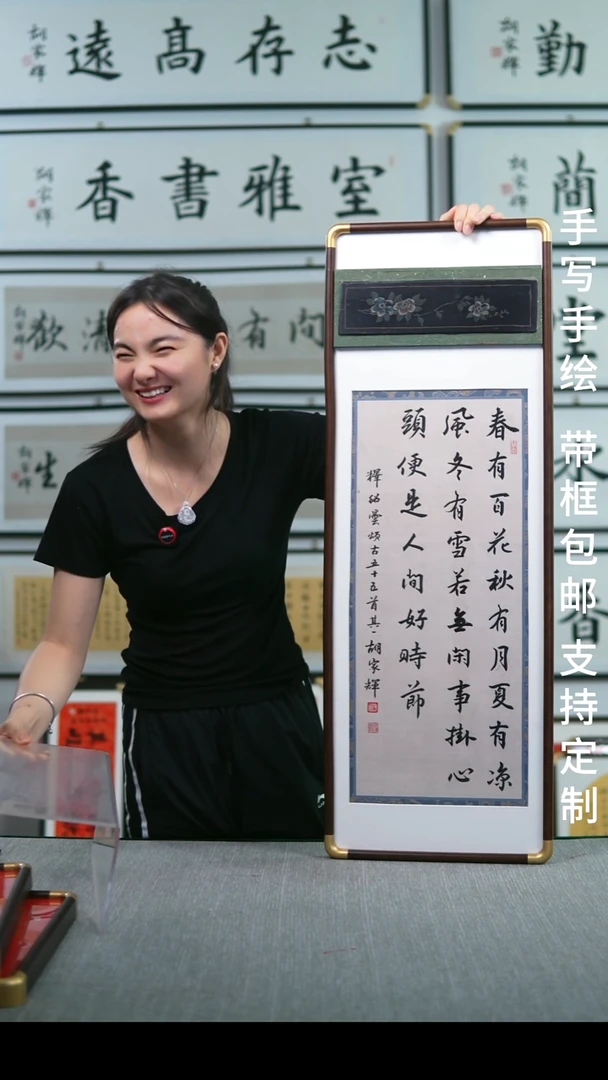 志存髙遠
胡家輝
勤
胡家輝
室雅書香
胡家輝
有
胡家輝
生
胡家輝
春有百花秋有月夏有凉
風冬有雪若無閑事掛心
頭便是人間好時節
釋紹曇頌古五十五首其一胡家輝
手写手绘 带框包邮支持定制